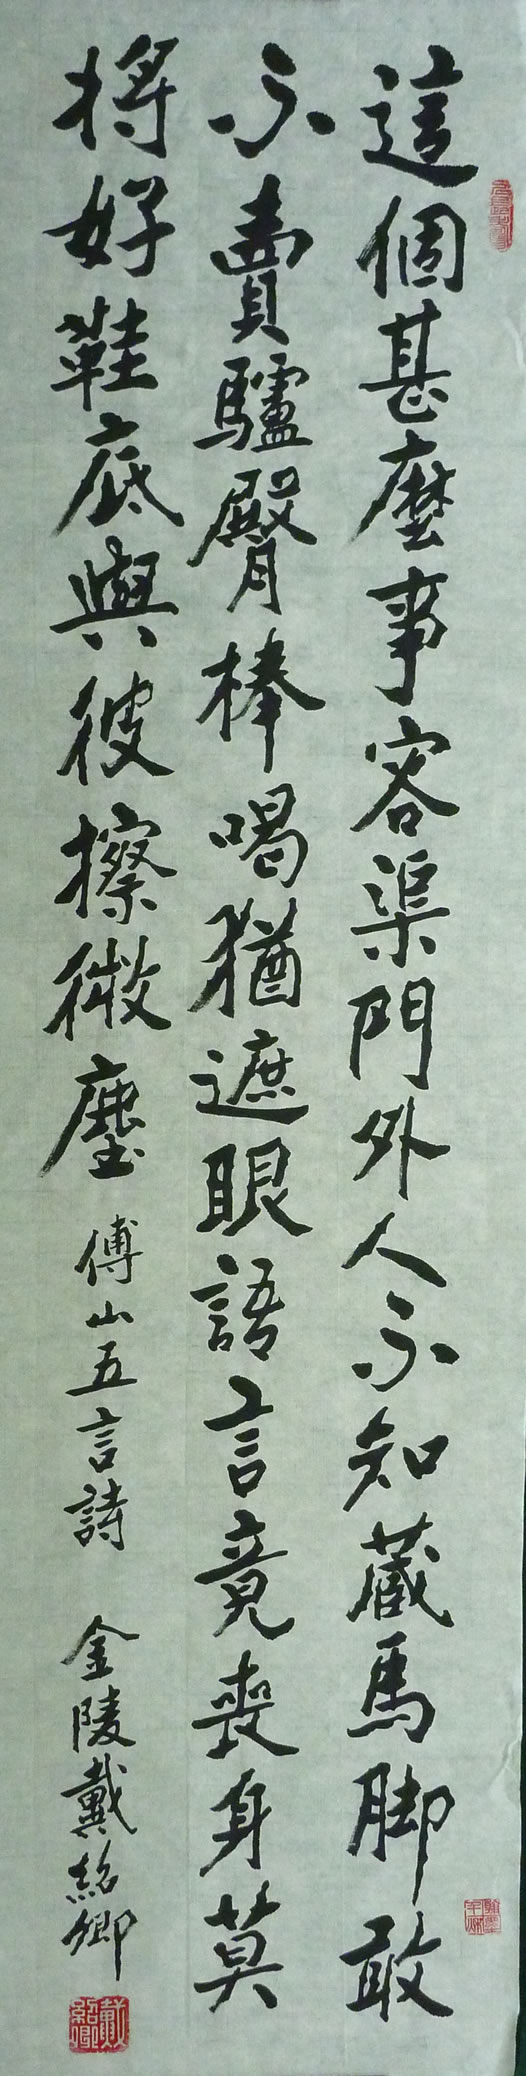 這個甚麼事容渠門外人不知藏馬脚敢
不賣驢臀棒喝猶遮眼語言竟喪身莫
將好鞋底與彼擦微塵
傅山五言詩 金陵戴紹卿
戴紹卿